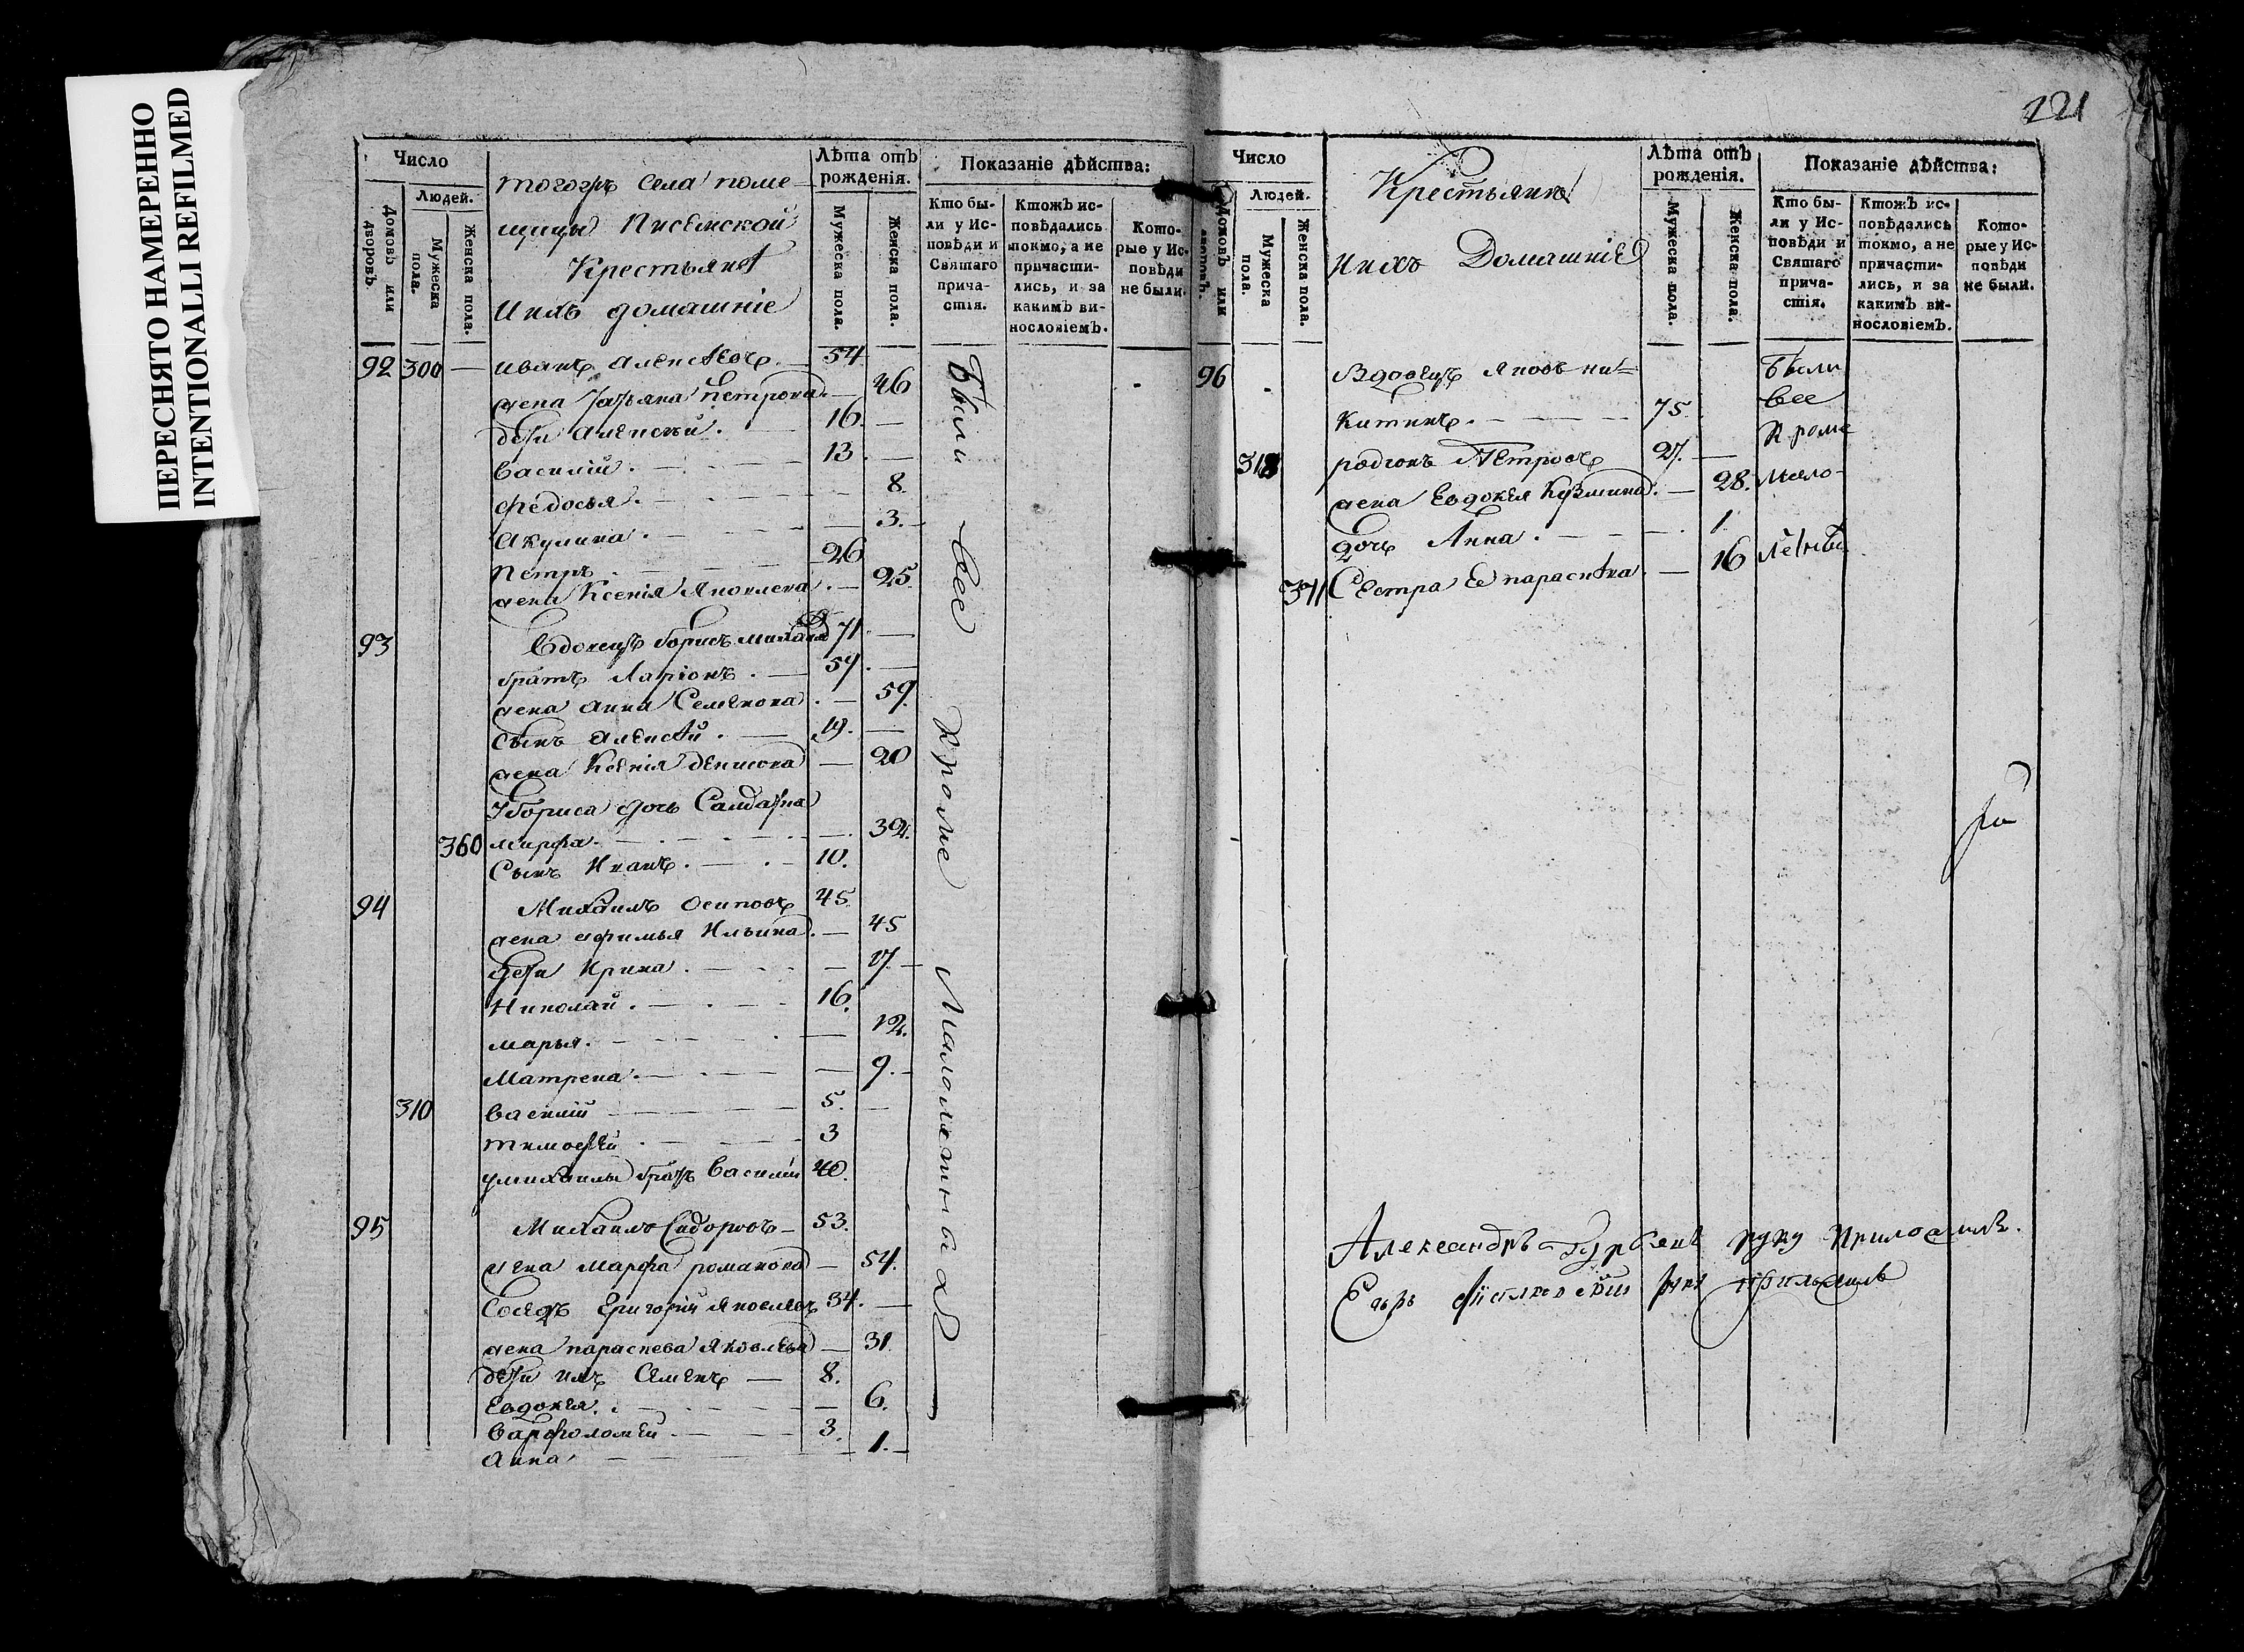 ПЕРЕСНЯТО НАМЕРЕННО
INTENTIONALLI REFILMED
Число
Людей.
Домовъ или дворовъ.
Мужеска пола.
Женска пола.
тогожъ села поме-
щицы Писемской
Крестьяне
и ихъ домашніе
Лѣта отъ рожденія.
Мужеска пола.
Женска пола.
Показаніе дѣйства:
Кто бы-
ли у Ис-
повѣди и
Святаго
прича-
стія.
Ктожъ ис-
повѣдались
токмо, а не
причасти-
лись, и за
какимъ ви-
нословіемъ.
Кото-
рые у Ис-
повѣди
не были.
92 300 — иванъ алексѣевъ — 54
жена татьяна петрова — 46
дѣти алексѣй. — 16. —
василій. — 13. —
федосья. — 8.
Акулина. — 3. —
Петръ — 26
жена Ксенія Яковлева. — 25
93 Вдовецъ борисъ 71. —
братъ Ларіонъ. — 57. —
жена анна Семенова. — 59.
сынъ алексѣй. — 19. —
жена Ксенія денисова — 20
У бориса дочь Салдатка
360 марфа. — 32.
Сынъ Иванъ. — 10.
94 Михаилъ осиповъ 45.
жена афимья Ильина. — 45
дѣти Ирина. — 17. —
Николай. — 16.
марья. — 12.
Матрена. — 9. —
310 василій — 5. —
тимофѣй — 3
у михаилы братъ Василій 40.
95 Михаилъ Сидоровъ — 53.
жена марфа романова — 54.
Сосѣдъ Григорій Яковлевъ 34. —
жена параскева Яковлева — 31.
дѣти ихъ Семенъ — 8.
Евдокея. — 6.
варфоломей — 3.
Анна — 1. —
Были все кроме Малолетныхъ
221
Число
Людей.
Домовъ или дворовъ.
Мужеска пола.
Женска пола.
Крестьяне
и ихъ Домашніе
Лѣта отъ рожденія.
Мужеска пола.
Женска пола.
Показаніе дѣйства:
Кто бы-
ли у Ис-
повѣди и
Святаго
прича-
стія.
Ктожъ ис-
повѣдались
токмо, а не
причасти-
лись, и за
какимъ ви-
нословіемъ.
Кото-
рые у Ис-
повѣди
не были.
96 Вдовецъ Яковъ ни-
китинъ. — 75.
318 родіонъ Петровъ 27. —
жена Евдокея Кузмина. — 28.
дочь Анна. — 1.
371 Сестра Ея параскева. — 16
Были
все
кроме
мало-
летных
ра
Александръ руку приложилъ.